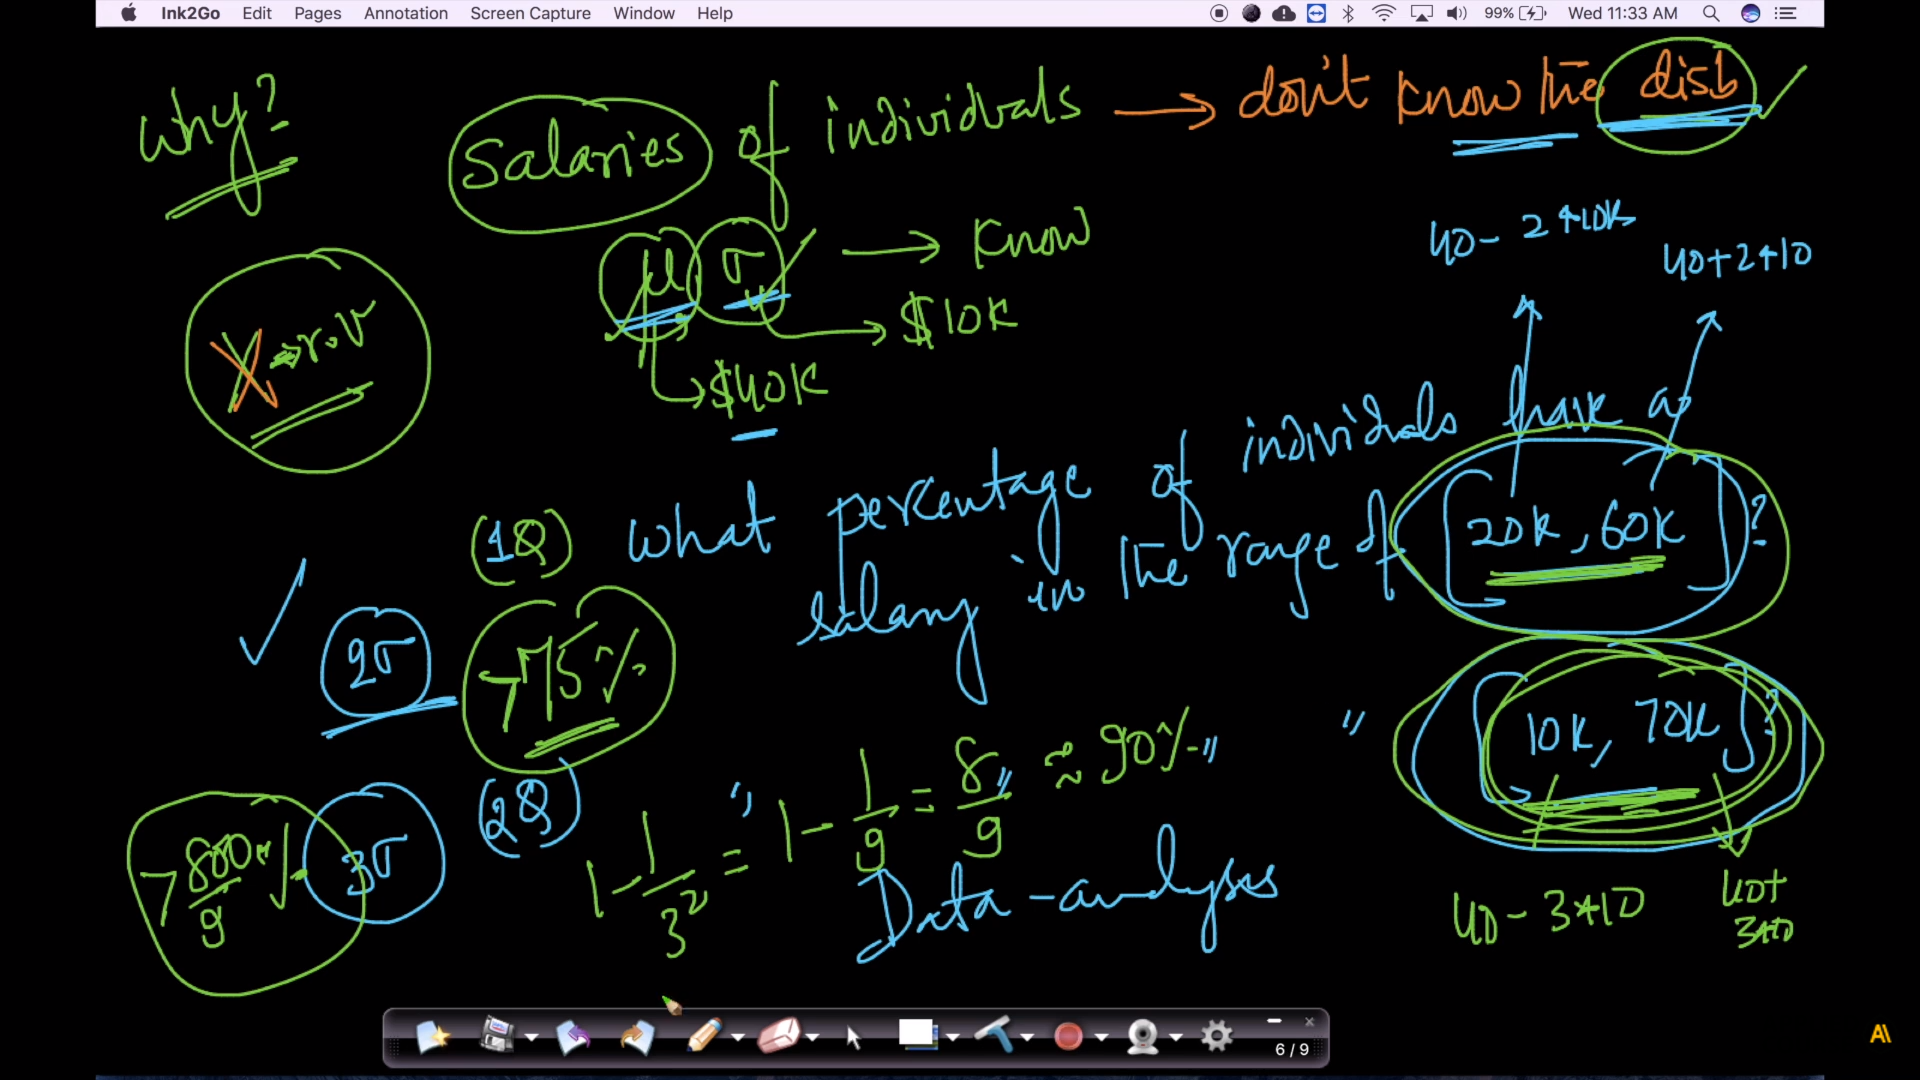 Ink2Go Edit Pages Annotation Screen Capture Window Help 99% Wed 11:33 AM
Why?
Salaries of individuals → don't know the disb
μ σ → know
40 - 2*10K
40+2*10
X → r.v
$10K
$40K
(1Q) What percentage of individuals have a
salary in the range of [20K, 60K]?
2σ >75%
" " " " [10K, 70K]?
(2Q)
1 - 1/3² = 1 - 1/9 = 8/9 ≈ 90%
> 800/9 % 3σ
Data-analysis
40 - 3*10
40+
3*10
6 / 9